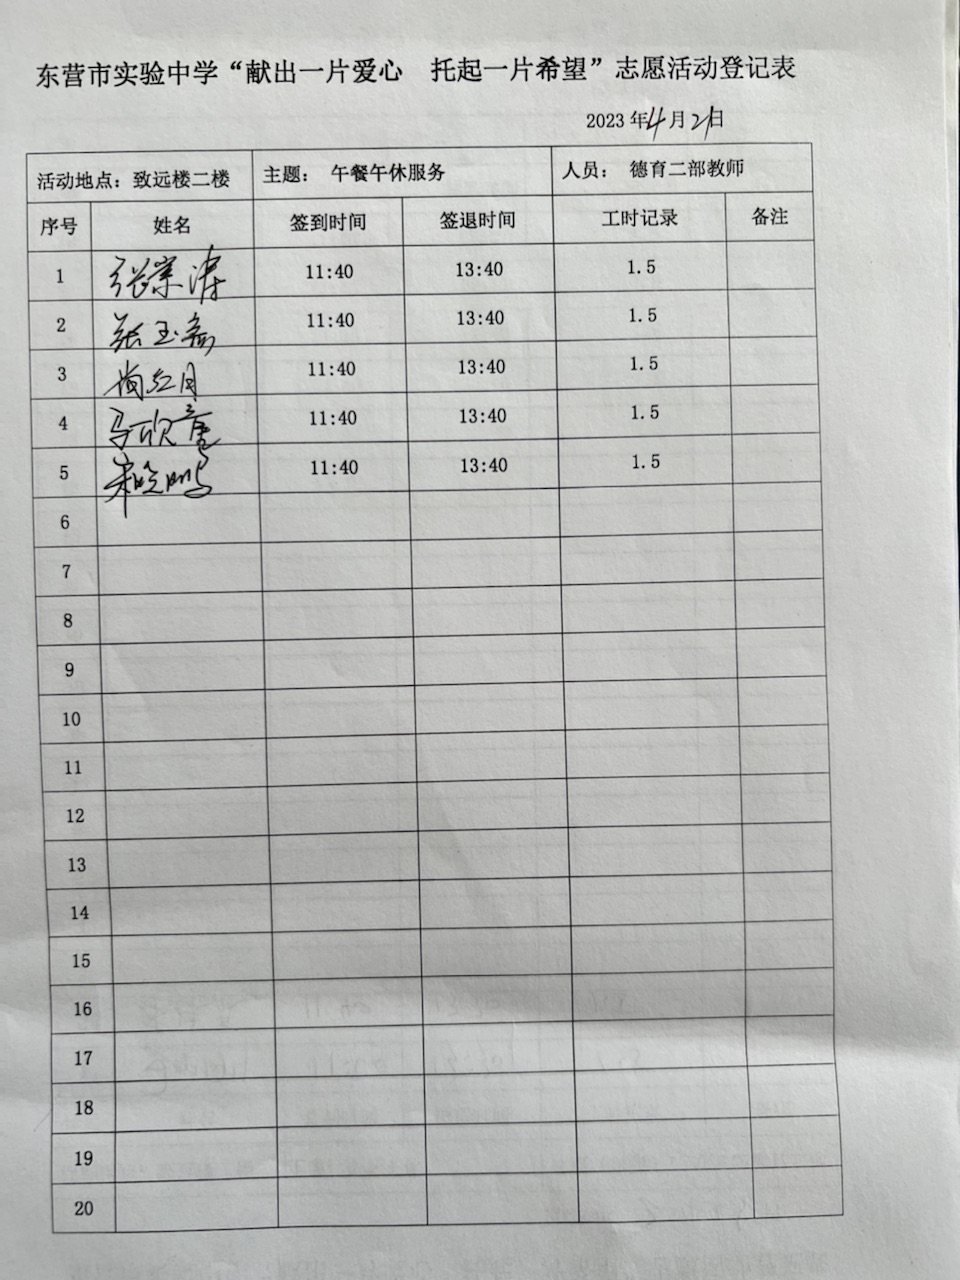 东营市实验中学“献出一片爱心 托起一片希望”志愿活动登记表
2023 年4月21日
活动地点：致远楼二楼 主题： 午餐午休服务 人员： 德育二部教师
序号 姓名 签到时间 签退时间 工时记录 备注
1 张崇涛 11:40 13:40 1.5
2 张玉 11:40 13:40 1.5
3 尚红月 11:40 13:40 1.5
4 马欣 11:40 13:40 1.5
5 宋晓鹏 11:40 13:40 1.5
6
7
8
9
10
11
12
13
14
15
16
17
18
19
20